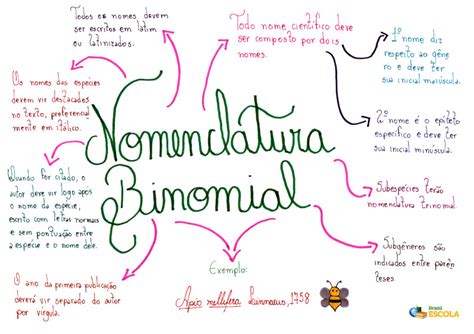 Todos os nomes devem
ser escritos em latim
ou latinizados.
Todo nome científico deve
ser composto por dois
nomes.
1º nome diz
respeito ao gêne
ro e deve ter
sua inicial maiúscula.
Os nomes das espécies
devem vir destacados
no texto, preferencial
mente em itálico.
2º nome é o epíteto
específico e deve ter
sua inicial minúscula.
Nomenclatura
Binomial
Quando for citado, o
autor deve vir logo após
o nome da espécie,
escrito com letras normais
e sem pontuação entre
a espécie e o nome dele.
Subespécies terão
nomenclatura trinomial.
Subgêneros são
indicados entre parên
teses.
O ano da primeira publicação
deverá vir separado do autor
por vírgula.
Exemplo:
Apis mellifera Linnaeus, 1758
Brasil
ESCOLA